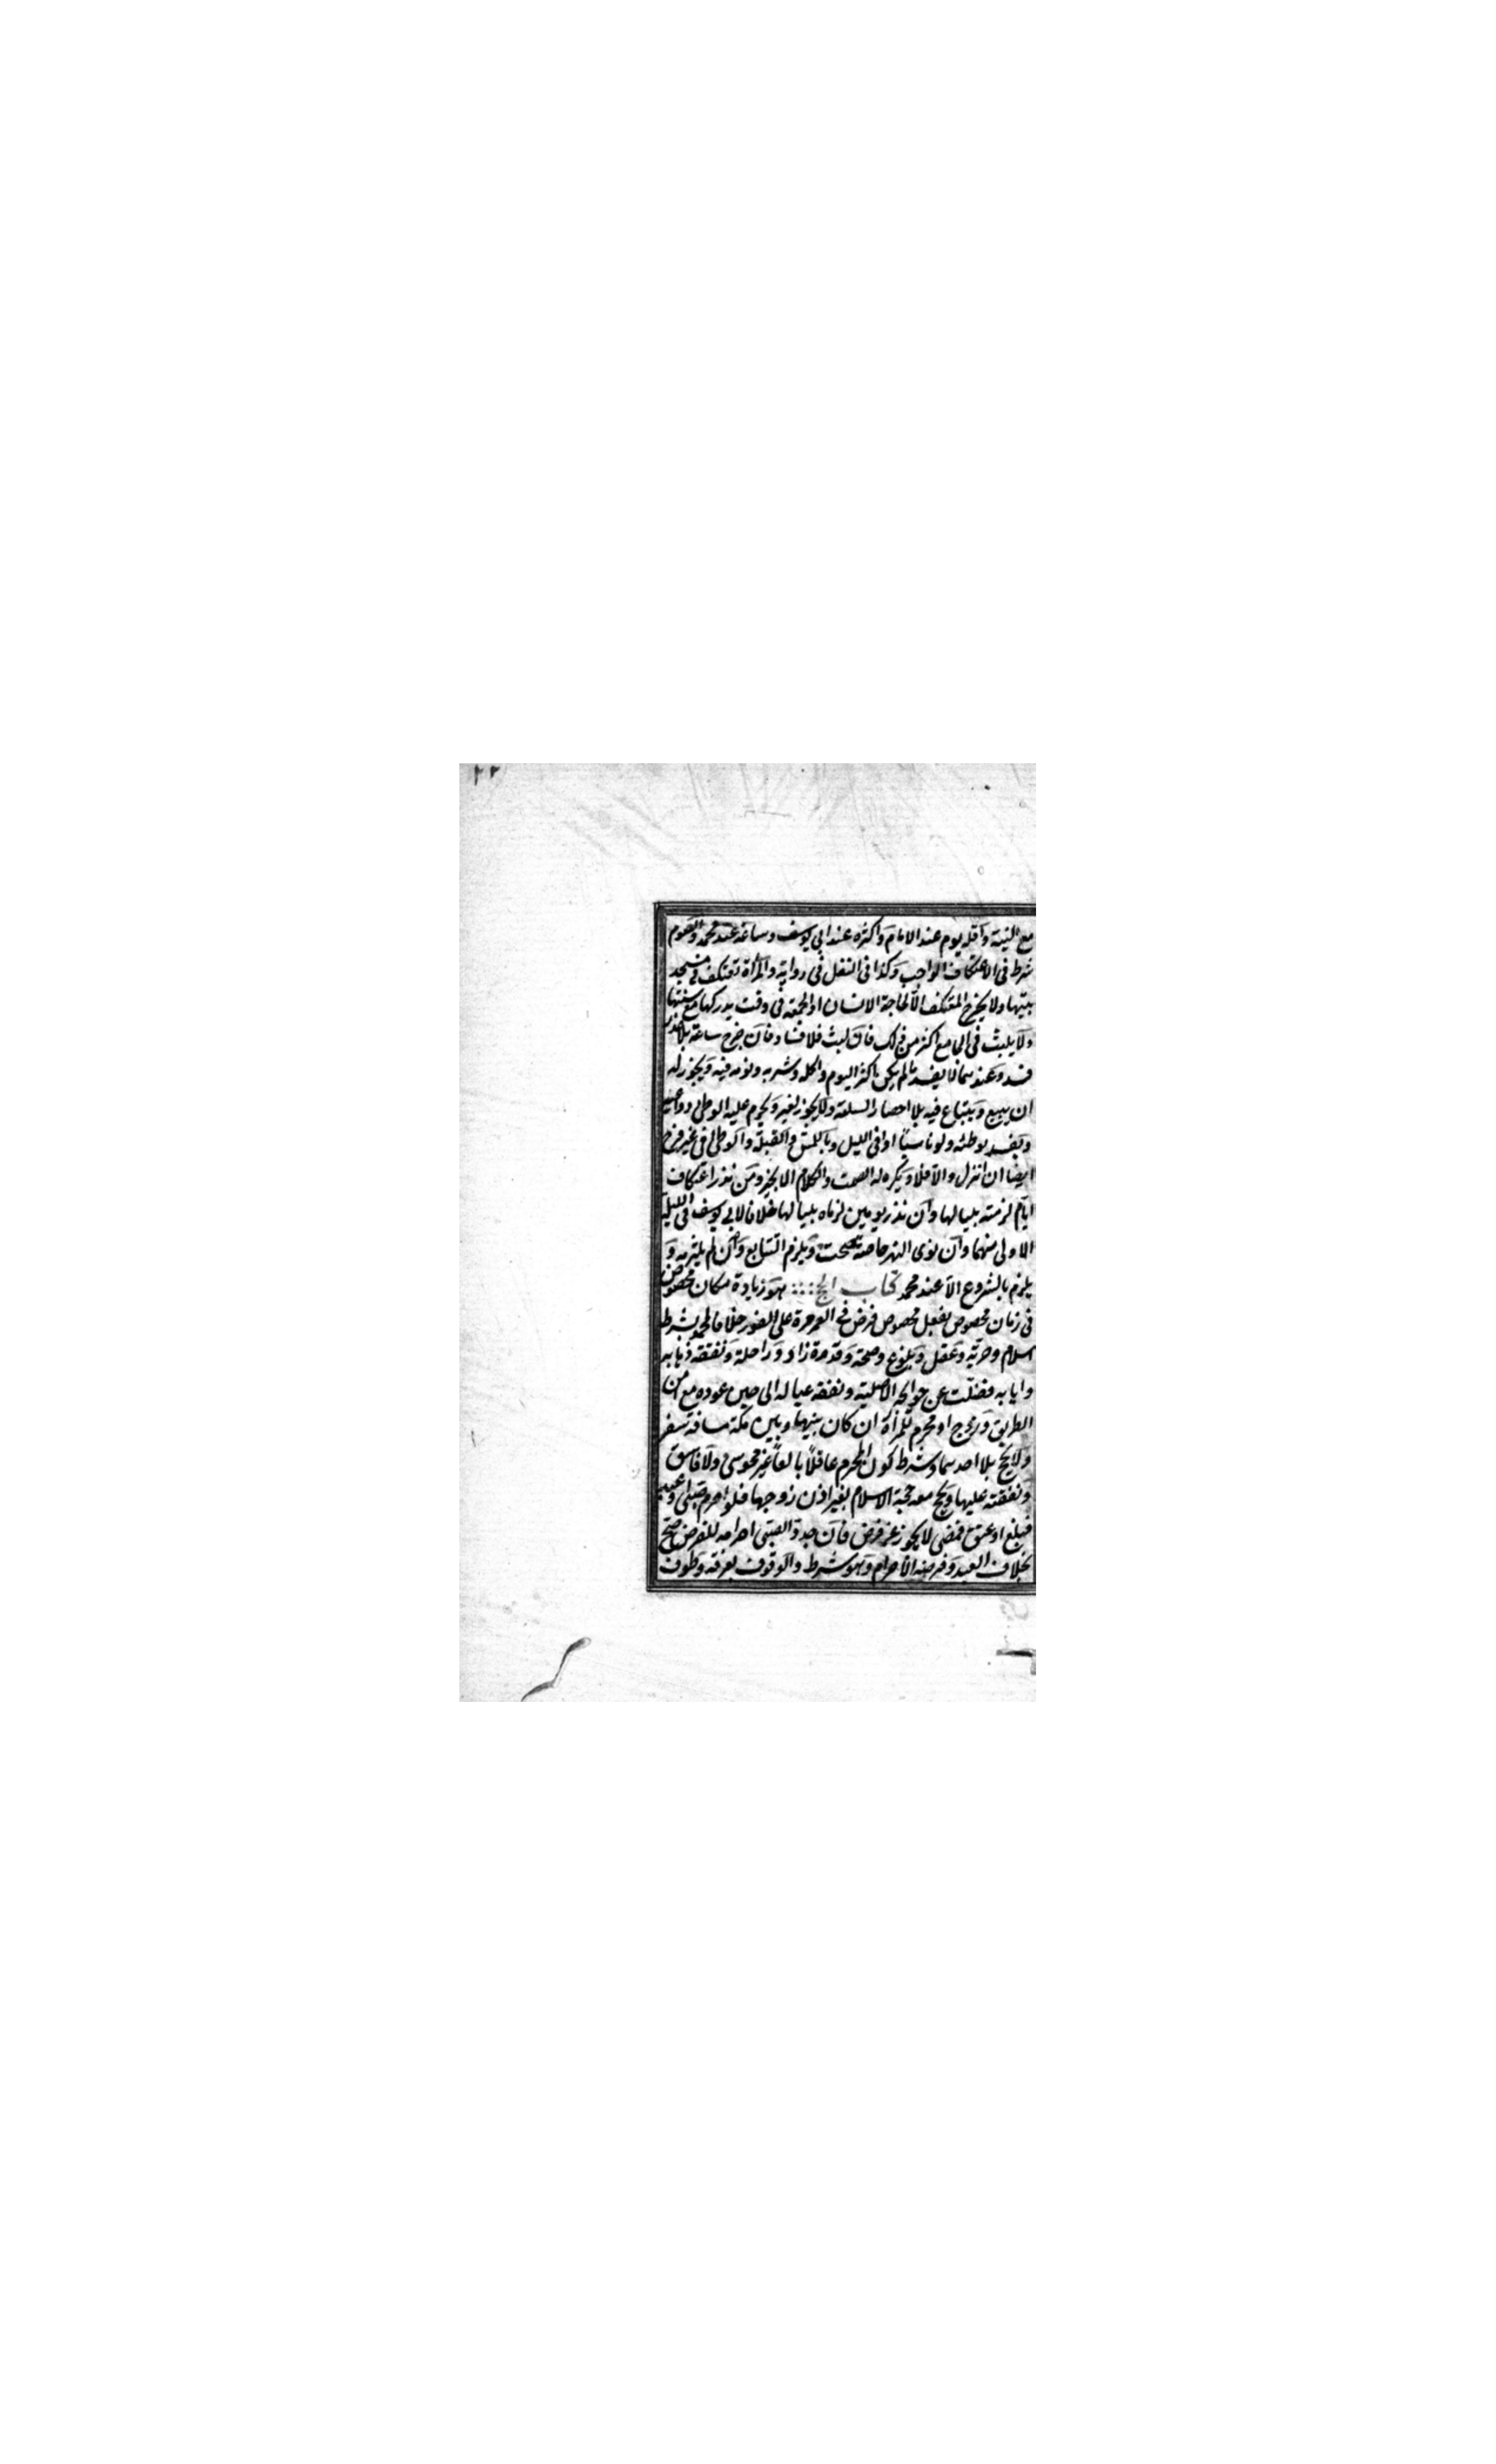 ٢٢
مع النية واقله يوم عند الامام واكثره عند ابي يوسف وساعة عند محمد والصوم
شرط في الاعتكاف الواجب وكذا في النفل في رواية والمرأة تعتكف في مسجد
بيتها ولا يخرج المعتكف الا لحاجة الانسان او الجمعة في وقت يدركها مع سنتها
ولا يلبث في الجامع اكثر من ذلك فان لبث فلا فساد فان خرج ساعة بلا عذر
فسد وعندهما لا يفسد مالم يكن اكثر اليوم واكله وشربه ونومه فيه ويجوز له
ان يبيع ويبتاع فيه بلا احضار السلعة ولا يجوز لغيره ويحرم عليه الوطئ ودواعيه
ويفسد بوطئه ولو ناسيا او في الليل وباللمس والقبلة والوطئ في غير فرج
ايضا ان انزل والا فلا ويكره له الصمت والكلام الا بخير ومن نذر اعتكاف
ايام لزمته بلياليها وان نذر يومين لزماه بلياليها خلافا لابي يوسف في الليلة
الاولى منهما وان نوى النهر خاصة صحت ويلزم التتابع وان لم يلتزمه و
يلزم بالشروع الا عند محمد كتاب الحج هو زيادة مكان مخصوص
في زمان مخصوص بفعل مخصوص فرض في العمر مرة على الفور خلافا لمحمد بشرط
اسلام وحرية وعقل وبلوغ وصحة وقدرة زاد وراحلة ونفقة ذهابه
وايابه فضلت عن حوائجه الاصلية ونفقة عياله الى حين عوده مع امن
الطريق وزوج او محرم للمرأة ان كان بينها وبين مكة مسافة سفر
ولا تحج بلا احدهما وشرط كون المحرم عاقلا بالغا غير مجوسي ولا فاسق
ونفقته عليها وتحج معه حجة الاسلام بغير اذن زوجها فلو احرم صبي او عبد
فبلغ او عتق فمضى لا يجوز عن فرض فان جدد الصبي احرامه للفرض صح
بخلاف العبد وفرضه الاحرام وهو شرط والوقوف بعرفة وطواف